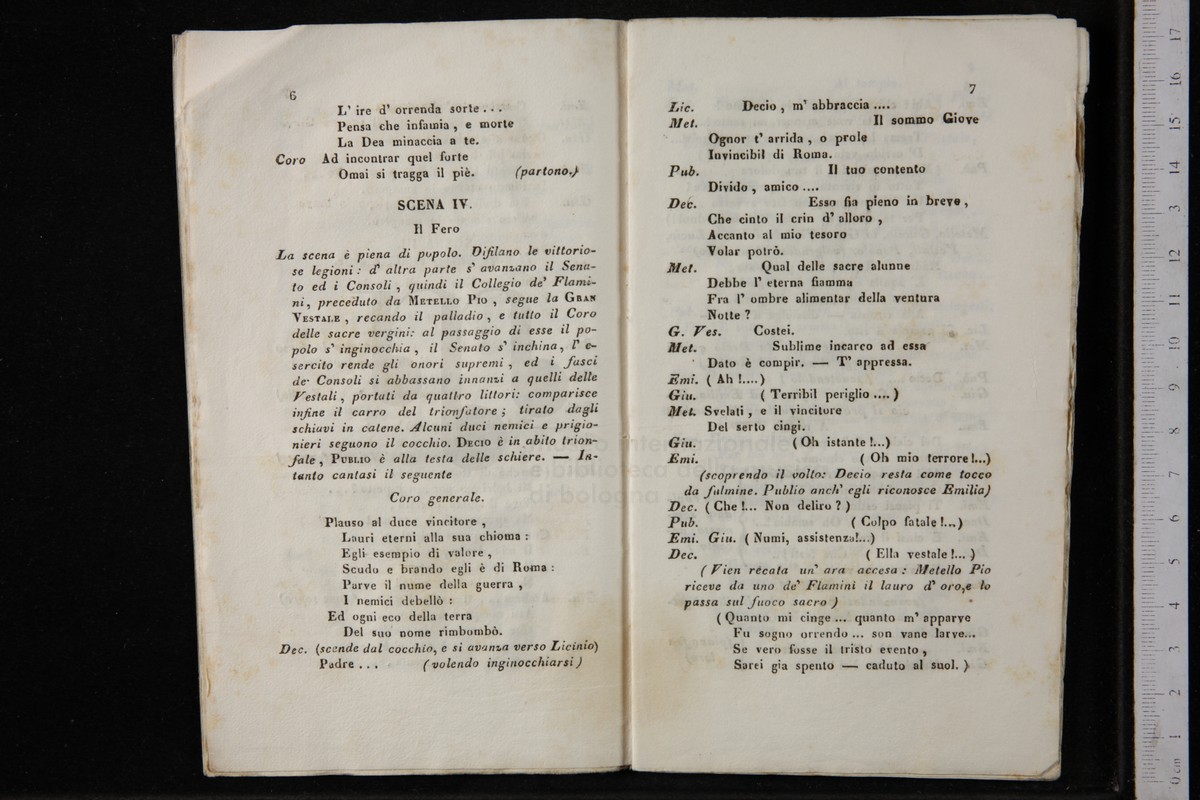 6
L' ire d' orrenda sorte . . .
Pensa che infamia , e morte
La Dea minaccia a te.
Coro Ad incontrar quel forte
Omai si tragga il piè. (partono.)
SCENA IV.
Il Fero
La scena è piena di popolo. Difilano le vittorio-
se legioni : d' altra parte s' avanzano il Sena-
to ed i Consoli , quindi il Collegio de' Flami-
ni, preceduto da METELLO PIO , segue la GRAN
VESTALE , recando il palladio , e tutto il Coro
delle sacre vergini: al passaggio di esse il po-
polo s' inginocchia , il Senato s' inchina, l' e-
sercito rende gli onori supremi , ed i fasci
de' Consoli si abbassano innanzi a quelli delle
Vestali , portati da quattro littori: comparisce
infine il carro del trionfatore ; tirato dagli
schiavi in catene. Alcuni duci nemici e prigio-
nieri seguono il cocchio. DECIO è in abito trion-
fale , PUBLIO è alla testa delle schiere. — In-
tanto cantasi il seguente
Coro generale.
Plauso al duce vincitore ,
Lauri eterni alla sua chioma :
Egli esempio di valore ,
Scudo e brando egli è di Roma :
Parve il nume della guerra ,
I nemici debellò :
Ed ogni eco della terra
Del suo nome rimbombò.
Dec. (scende dal cocchio, e si avanza verso Licinio)
Padre . . . (volendo inginocchiarsi)
7
Lic. Decio , m' abbraccia ....
Met. Il sommo Giove
Ognor t' arrida , o prole
Invincibil di Roma.
Pub. Il tuo contento
Divido , amico ....
Dec. Esso fia pieno in breve ,
Che cinto il crin d' alloro ,
Accanto al mio tesoro
Volar potrò.
Met. Qual delle sacre alunne
Debbe l' eterna fiamma
Fra l' ombre alimentar della ventura
Notte ?
G. Ves. Costei.
Met. Sublime incarco ad essa
Dato è compir. — T' appressa.
Emi. ( Ah !....)
Giu. ( Terribil periglio .... )
Met. Svelati , e il vincitore
Del serto cingi.
Giu. (Oh istante !...)
Emi. ( Oh mio terrore !...)
(scoprendo il volto: Decio resta come tocco
da fulmine. Publio anch' egli riconosce Emilia)
Dec. ( Che !... Non deliro ? )
Pub. ( Colpo fatale !...)
Emi. Giu. ( Numi, assistenza!...)
Dec. ( Ella vestale !... )
( Vien recata un' ara accesa : Metello Pio
riceve da uno de' Flamini il lauro d' oro,e lo
passa sul fuoco sacro )
( Quanto mi cinge ... quanto m' apparve
Fu sogno orrendo ... son vane larve...
Se vero fosse il tristo evento ,
Sarei gia spento — caduto al suol. )